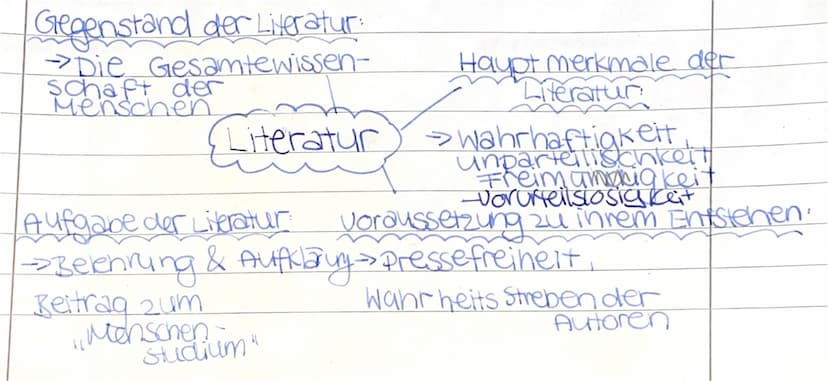 Gegenstand der Literatur:
→ Die Gesamtewissen-
schaft der
Menschen
Literatur
Hauptmerkmale der
Literatur:
→ Wahrhaftigkeit,
Unparteilischkeit
Freimündigkeit
- Vorurteilslosigkeit
Aufgabe der Literatur:
→ Belehrung & Aufklärung
Beitrag zum
„Menschen-
studium"
Voraussetzung zu ihrem Entstehen:
→ Pressefreiheit,
Wahrheitsstreben der
Autoren